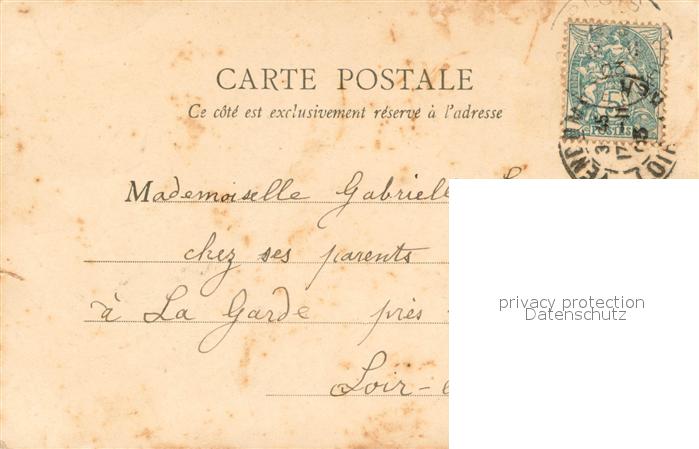 CARTE POSTALE
Ce côté est exclusivement réservé à l'adresse
POSTES
Mademoiselle Gabriell
chez ses parents
à La Garde près
Loir-
privacy protection
Datenschutz